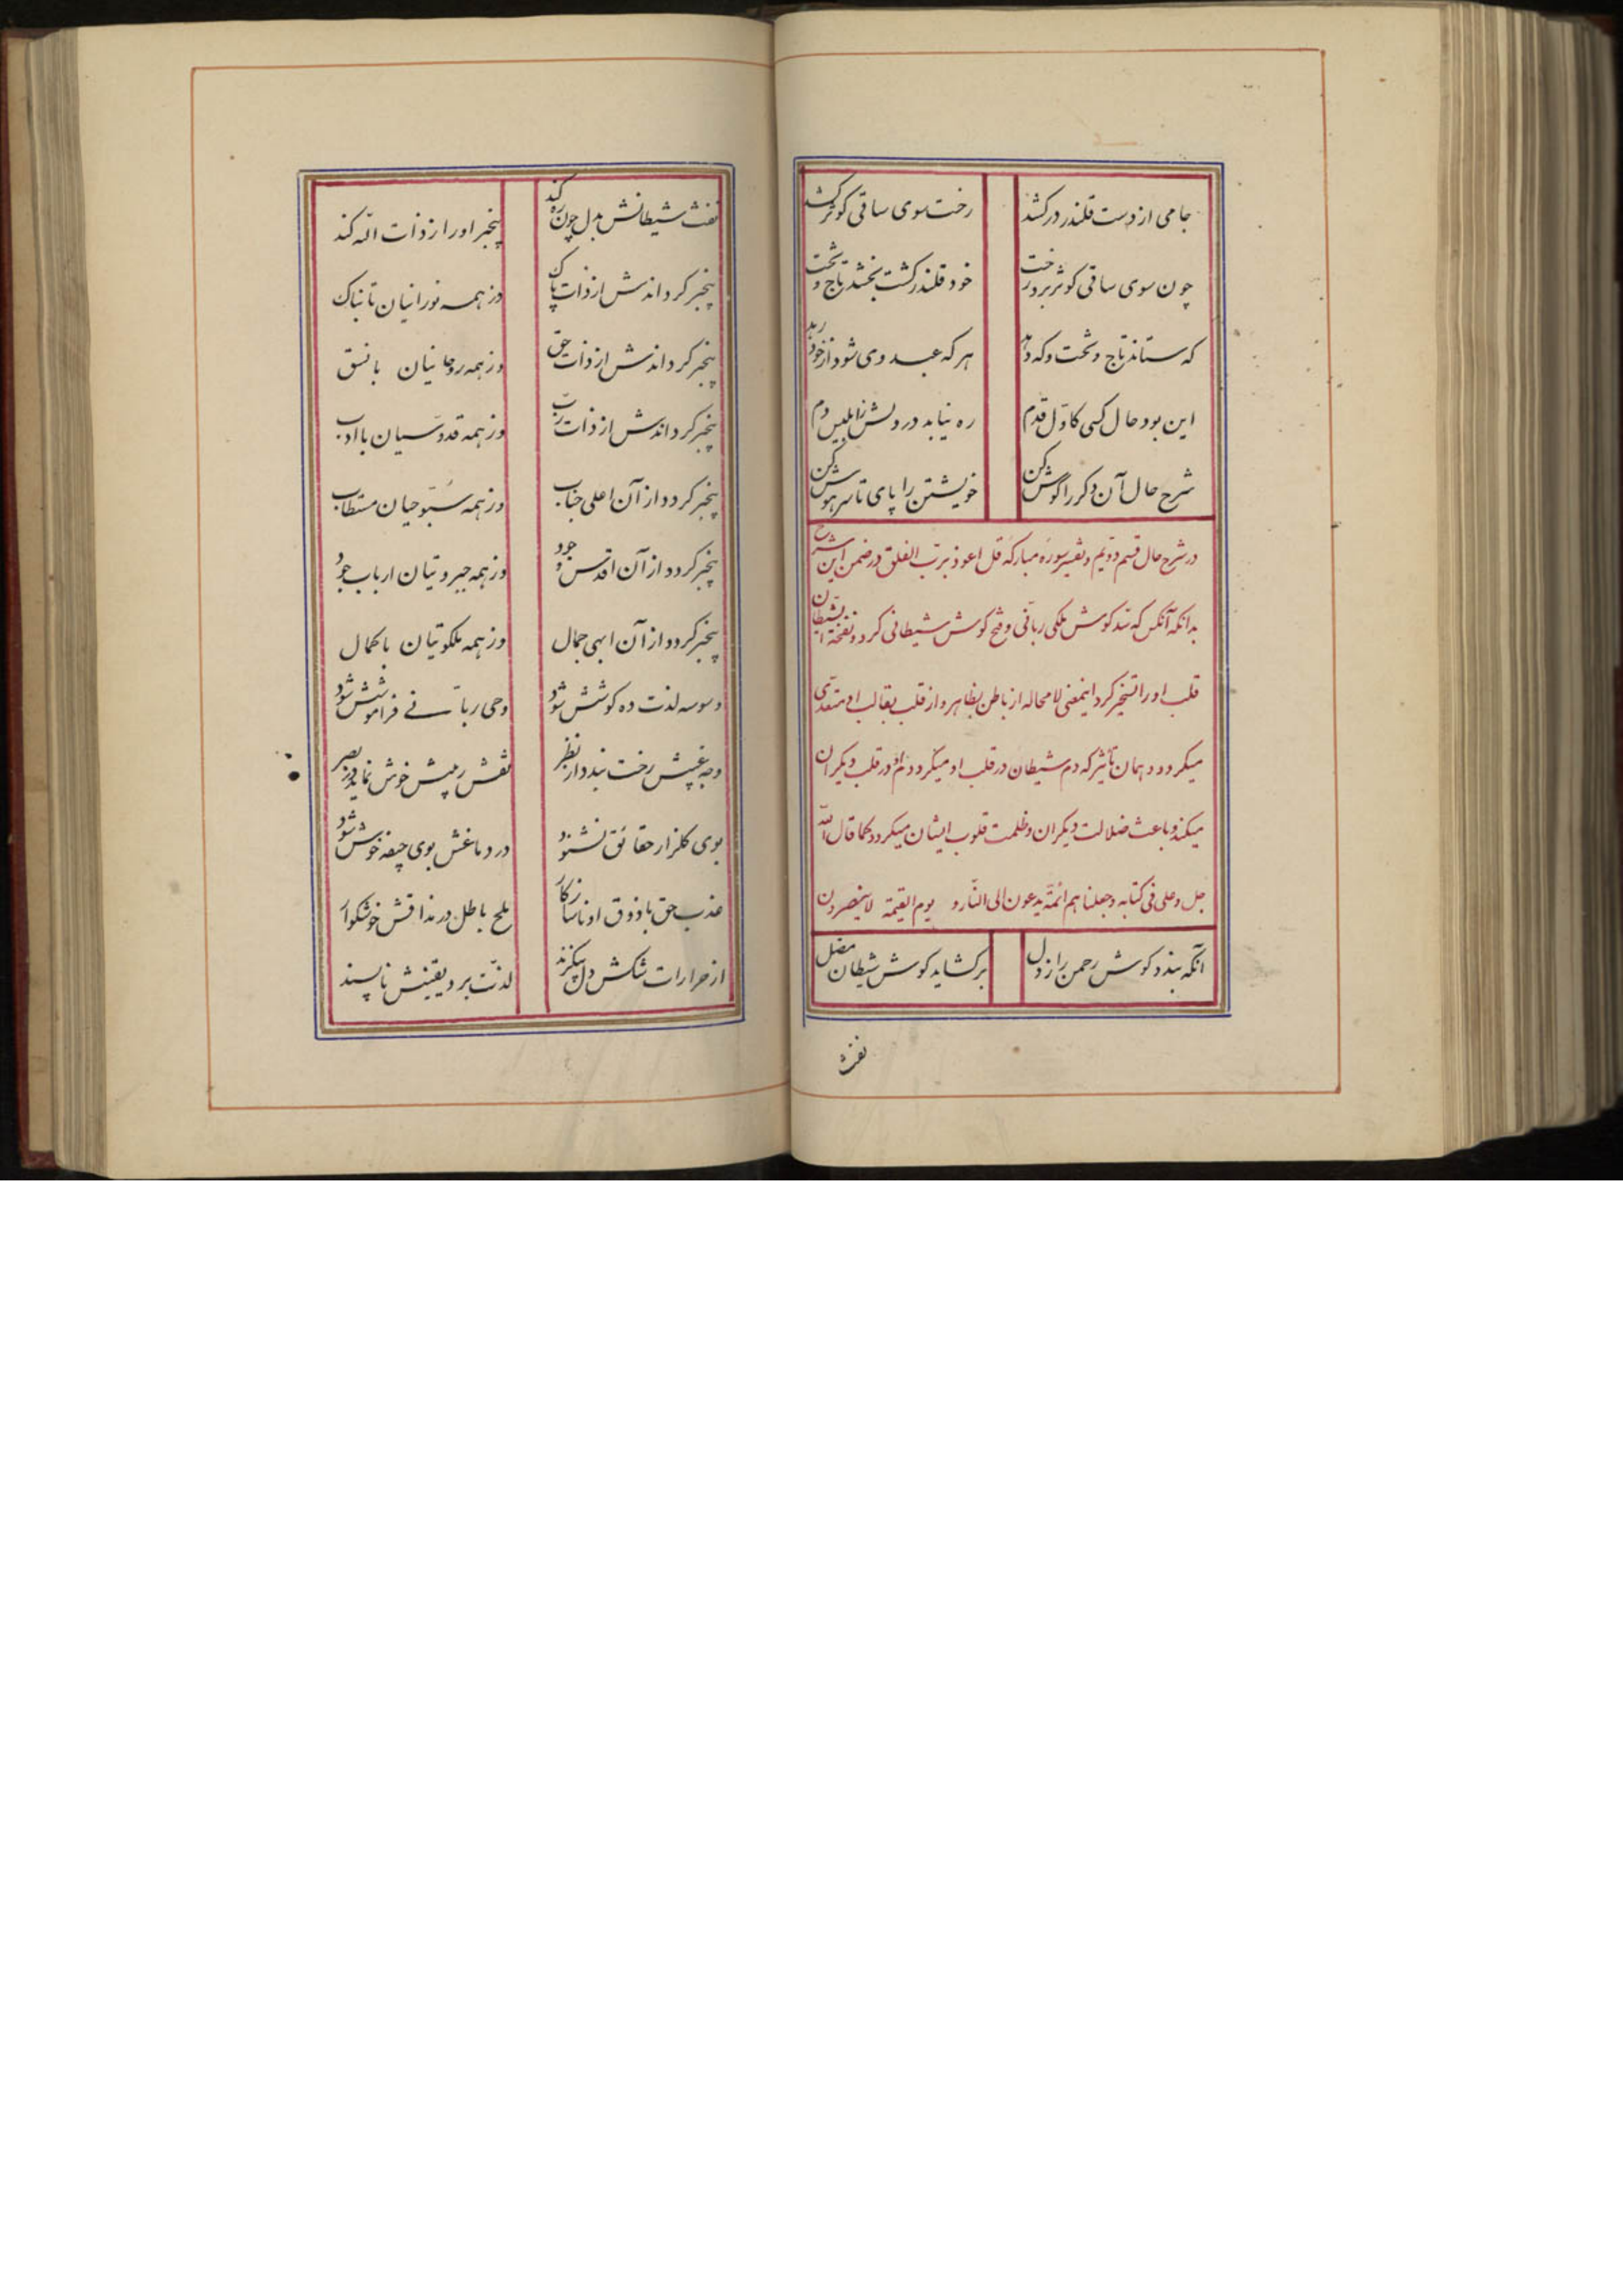 جامی از دست قلندر در کشد رخت سوی ساقی کوثر کشد
چون سوی ساقی کوثر برد رخت خود قلندر کشت بخشد تاج و تخت
که ستاند تاج و تخت و که دهد هر که عبد وی شود از خود رهد
این بود حال کسی کاوّل قدم ره نیابد در دلش ز ابلیس دم
شرح حال آن دکر را گوش کن خویشتن را پای تا سر هوش کن
در شرح حال قسم دویّم و تفسیر سوره مبارکه قل اعوذ بربّ الفلق در ضمن این شرح
بدانکه آنکس که سد کوش ملکی ربّانی و فتح کوش شیطانی کرد و نفخة الشیطان
قلب او را تسخیر کرد اینمعنی لامحاله از باطن بظاهر و از قلب بقالب او متعدّی
میکردد و همان تأثیر که دم شیطان در قلب او میکرد دم او در قلب دیکران
میکند و باعث ضلالت دیکران و ظلمت قلوب ایشان میکردد کما قال الله
جل و علی فی کتابه و جعلناهم ائمّة یدعون الی النّار و یوم القیمة لاینصرون
آنکه بندد کوش رحمن را ز دل برکشاید کوش شیطان مضل
نفث
نفث شیطانش بدل چون ره کند بیخبر او را ز ذات الّه کند
بیخبر کرداندش از ذات پاک وز همه نورانیان تابناک
بیخبر کرداندش از ذات حق وز همه روحانیان با نسق
بیخبر کرداندش از ذات ربّ وز همه قدّوسیان با ادب
بیخبر کردد از آن اعلی جناب وز همه سبّوحیان مستطاب
بیخبر کردد از آن اقدس وجود وز همه جبروتیان ارباب جود
بیخبر کردد از آن ابهی جمال وز همه ملکوتیان با کمال
وسوسه لذت ده کوشش شود وحی ربّانی فراموشش شود
وجه غیبش رخت بندد از نظر نقش ریبش خوش نماید در بصر
بوی کلزار حقائق نشنود در دماغش بوی جیفه خوش شود
عذب حق با ذوق او ناسازکار ملح باطل در مذاقش خوشکوار
از حرارات شکش دل بیکزند لذّت برد یقینش ناپسند